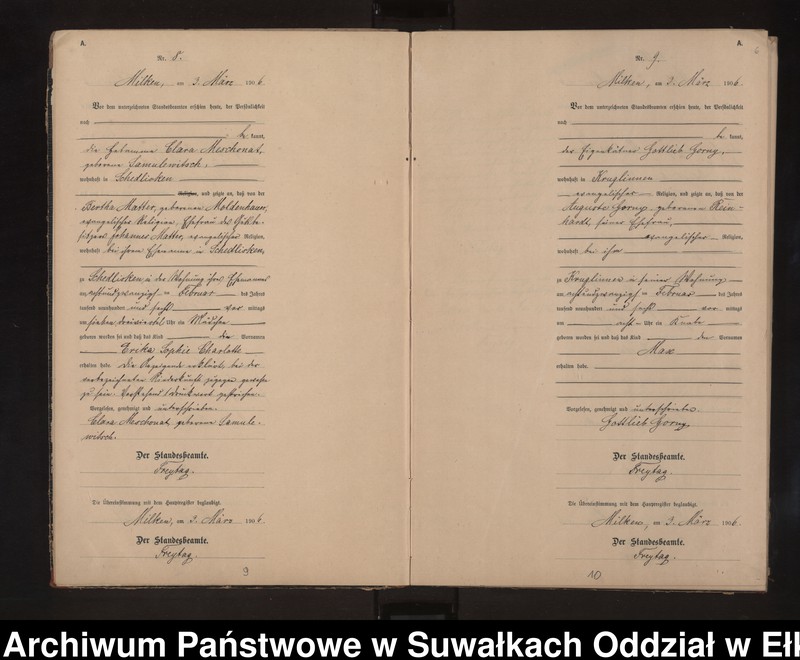 A.
Nr. 8.
Milken, am 3. März 1906
Vor dem unterzeichneten Standesbeamten erschien heute, der Persönlichkeit
nach
be kannt,
die Hebamme Clara Meschonat,
geborene Samulewitsch,
wohnhaft in Schedlisken
Religion, und zeigte an, daß von der
Bertha Matter, geborenen Moldenhauer,
evangelischer Religion, Ehefrau des
Johannes Matter, evangelischer Religion,
wohnhaft bei ihrem Ehemanne in Schedlisken,
zu Schedlisken in der Wohnung ihres Ehemannes
am achtundzwanzigsten Februar des Jahres
tausend neunhundert und sechs vor mittags
um sieben dreiviertel Uhr ein Mädchen
geboren worden sei und daß das Kind den Vornamen
Erika Sophie Charlotte
erhalten habe. Die Anzeigende erklärte, bei der
vorbezeichneten Niederkunft zugegen gewesen
zu sein. Vorstehend 1 Druckwort gestrichen.
Vorgelesen, genehmigt und unterschrieben.
Clara Meschonat, geborene Samule-
witsch.
Der Standesbeamte.
Freytag.
Die Übereinstimmung mit dem Hauptregister beglaubigt.
Milken, am 3. März 1906
Der Standesbeamte.
Freytag.
9
A.
6
Nr. 9.
Milken, am 3. März 1906.
Vor dem unterzeichneten Standesbeamten erschien heute, der Persönlichkeit
nach
be kannt,
der Eigenkätner Gottlieb Gorny,
wohnhaft in Kruglinnen
evangelischer Religion, und zeigte an, daß von der
Auguste Gorny geborenen Rein-
hardt, seiner Ehefrau,
evangelischer Religion,
wohnhaft bei ihm
zu Kruglinnen in seiner Wohnung
am achtundzwanzigsten Februar des Jahres
tausend neunhundert und sechs vor mittags
um acht Uhr ein Knabe
geboren worden sei und daß das Kind den Vornamen
Max
erhalten habe.
Vorgelesen, genehmigt und unterschrieben.
Gottlieb Gorny,
Der Standesbeamte.
Freytag.
Die Übereinstimmung mit dem Hauptregister beglaubigt.
Milken, am 3. März 1906.
Der Standesbeamte.
Freytag.
10
Archiwum Państwowe w Suwałkach Oddział w Ełk